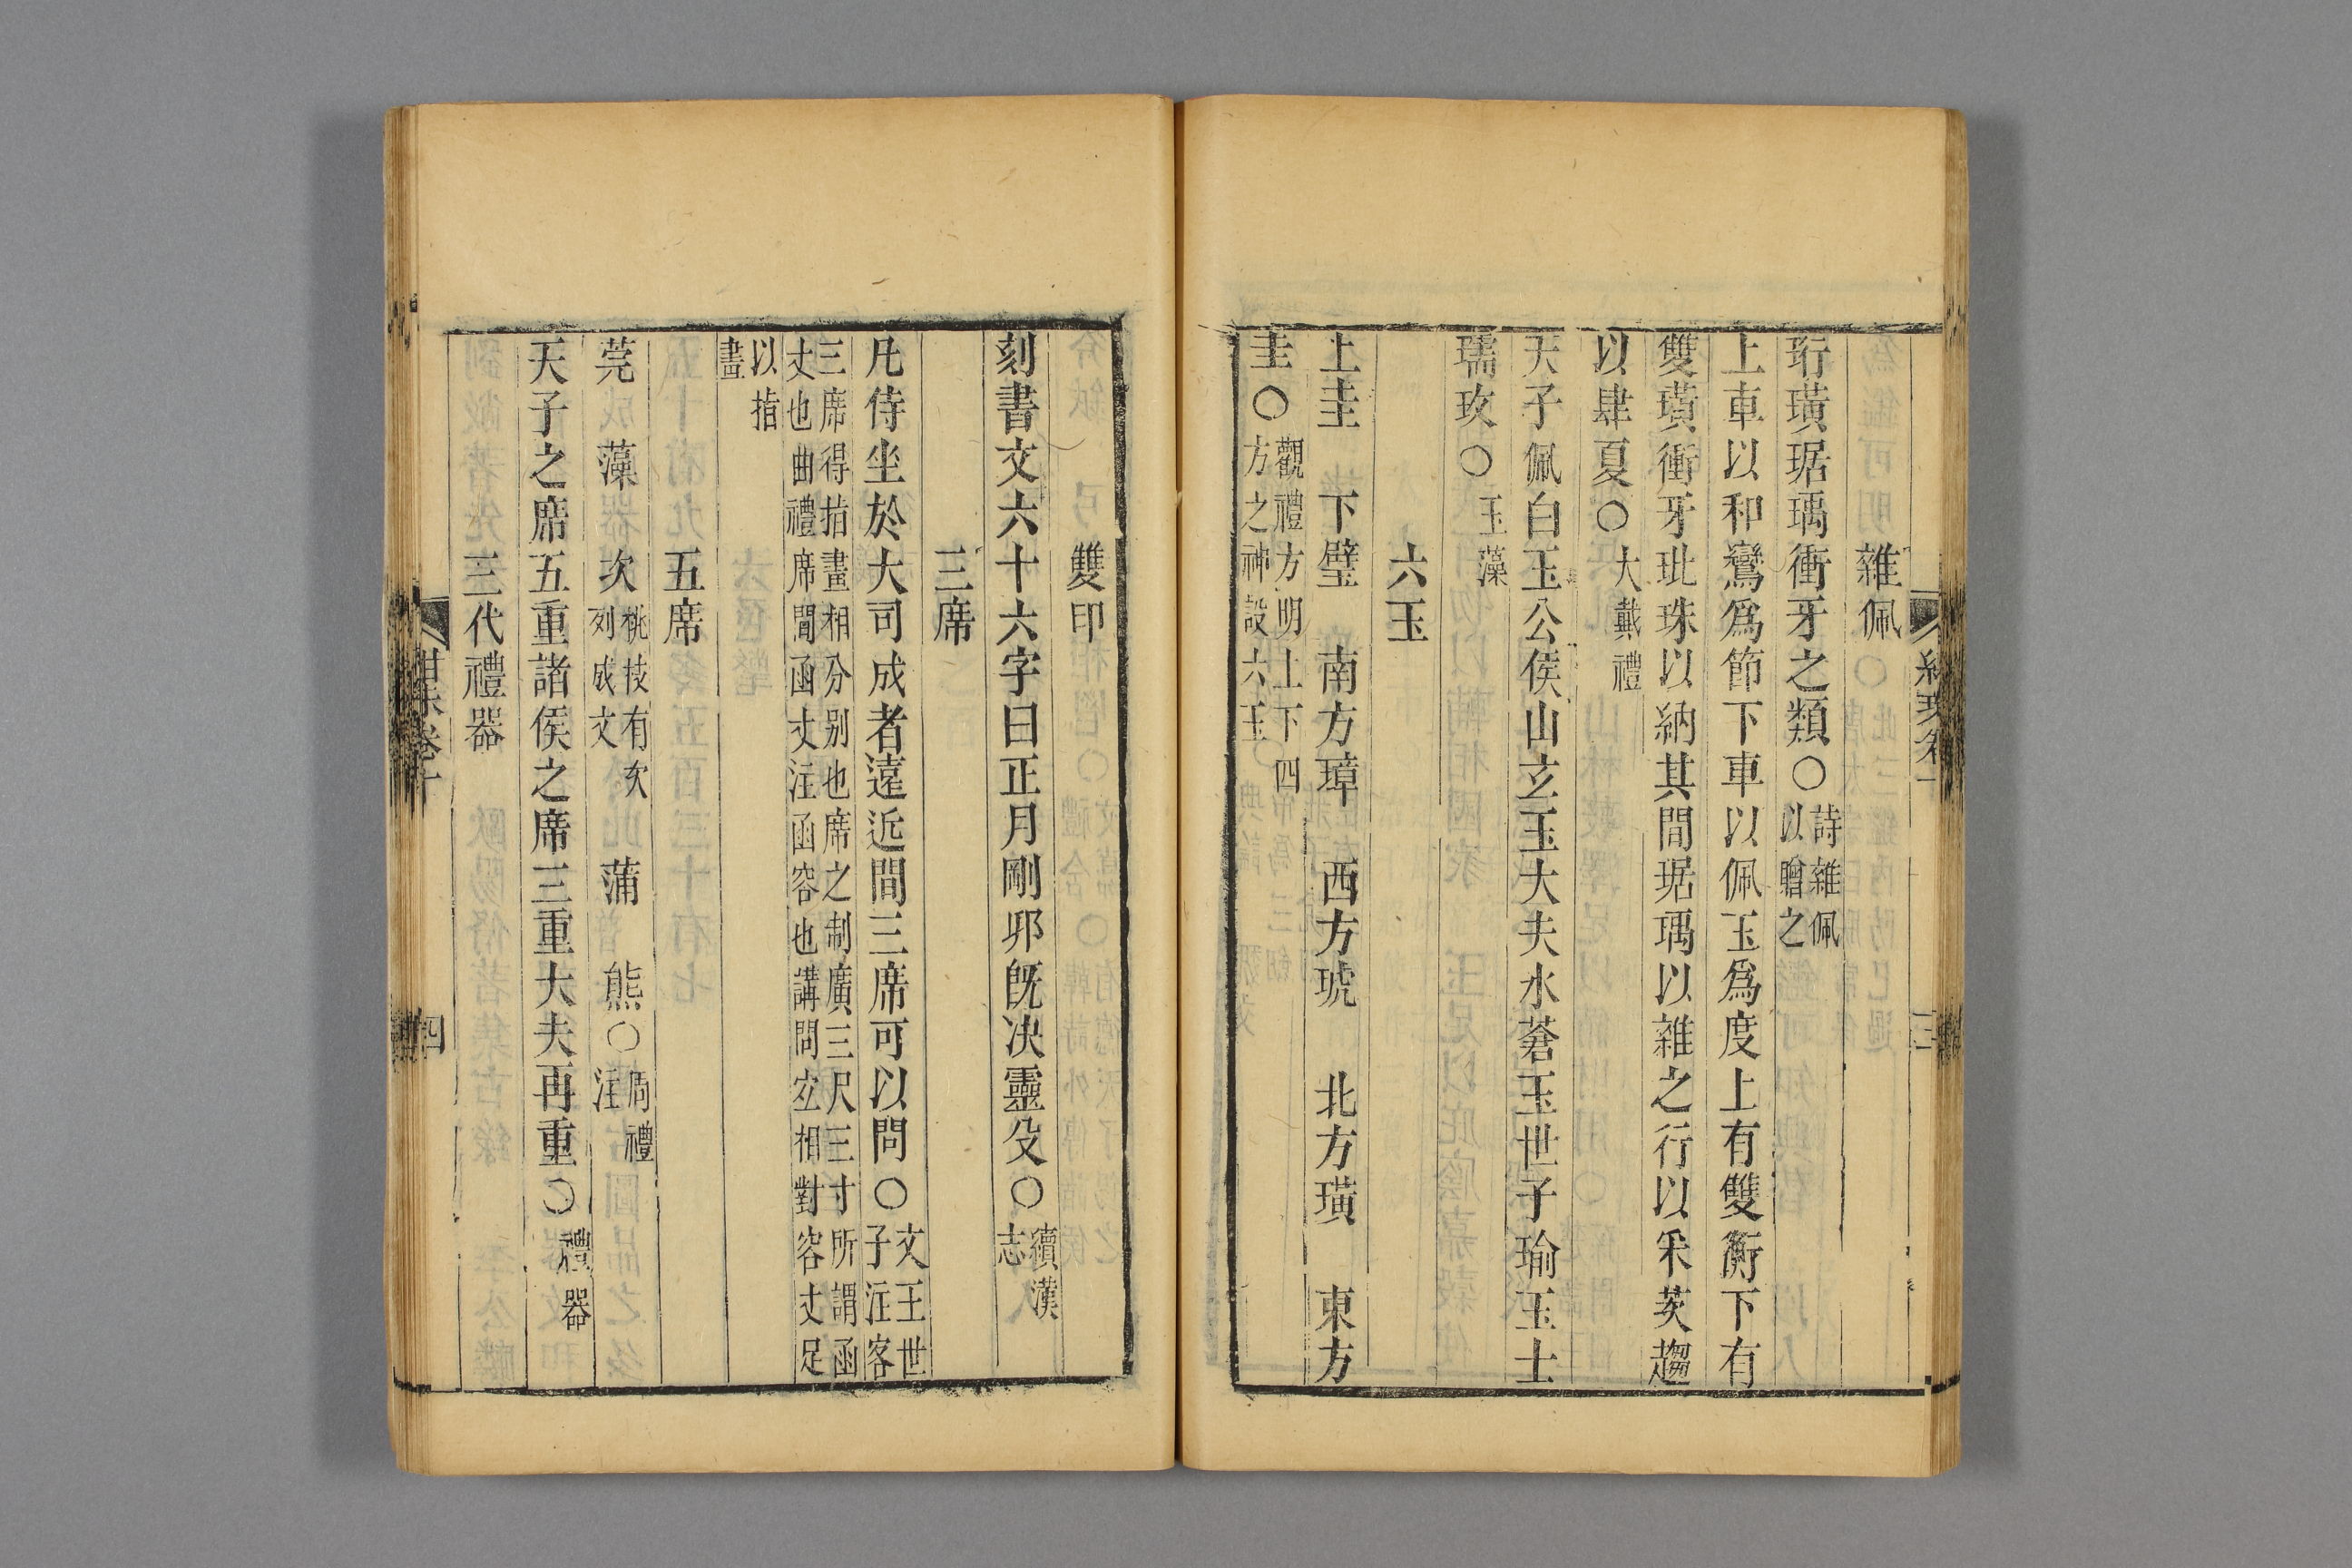 雜佩
珩璜琚瑀衝牙之類〇詩雜佩以贈之
上車以和鸞爲節下車以佩玉爲度上有雙衡下有
雙璜衝牙玭珠以納其間琚瑀以雜之行以采茨趨
以肆夏〇大戴禮
天子佩白玉公侯山玄玉大夫水蒼玉世子瑜玉士
瓀玫〇玉藻
六玉
上圭　下璧　南方璋　西方琥　北方璜　東方
圭〇觀禮方明上下四方之神設六玉
三
雙印
刻書文六十六字曰正月剛卯旣決靈殳〇續漢志
三席
凡侍坐於大司成者遠近間三席可以問〇文王世子注客
三席得指畫相分别也席之制廣三尺三寸所謂函
丈也曲禮席間函丈注函容也講問宐相對容丈足
以指畫
五席
莞　藻　次桃枝有次列成文　蒲　熊〇周禮注
天子之席五重諸侯之席三重大夫再重〇禮器
三代禮器
四